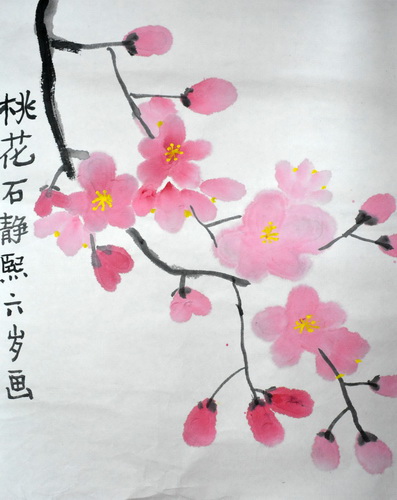 桃花石静熙六岁画